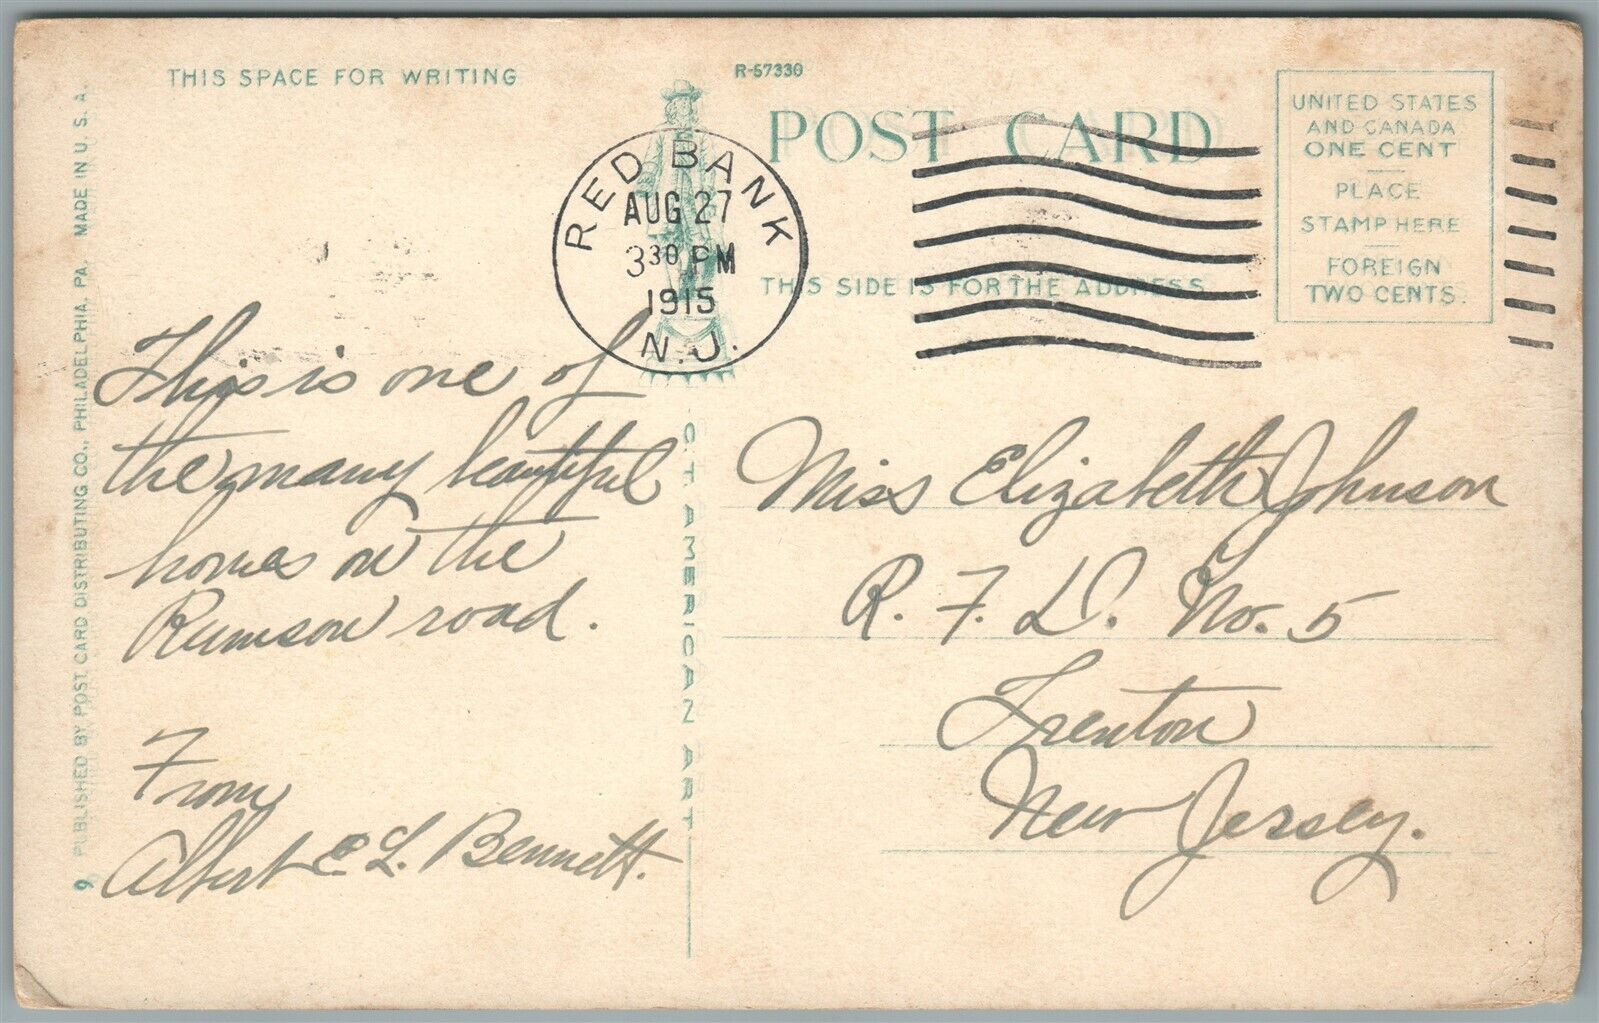 THIS SPACE FOR WRITING
R-57330
POST CARD
UNITED STATES
AND CANADA
ONE CENT
PLACE
STAMP HERE
FOREIGN
TWO CENTS.
RED BANK
AUG 27
3 30 PM
1915
N.J.
THIS SIDE IS FOR THE ADDRESS
This is one of
the many beautiful
homes on the
Rumson road.
From
Albert E. L. Bennett.
Miss Elizabeth Johnson
R. F. D. No. 5
Trenton
New Jersey.
C. T. AMERICAN ART
9 PUBLISHED BY POST CARD DISTRIBUTING CO., PHILADELPHIA, PA. MADE IN U. S. A.